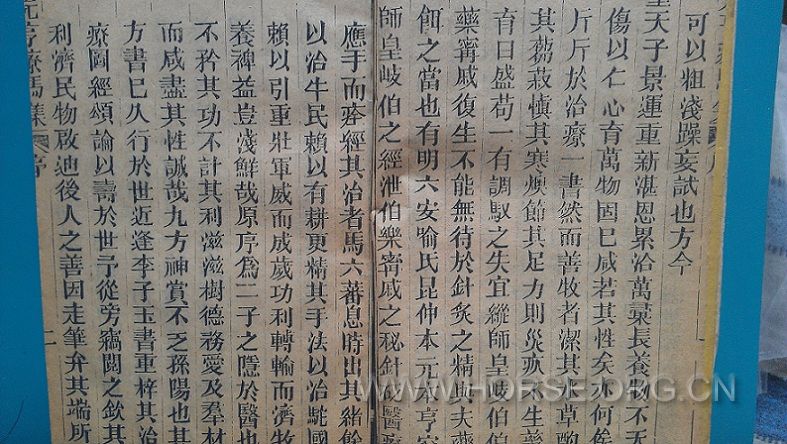 可以粗淺躁妄試也方今
聖天子景運重新湛恩累洽萬彙長養物不天
傷以仁心育萬物固已咸若其性矣亦何俟
斤斤於治療一書然而善牧者潔其水草酌
其芻菽慎其寒燠節其足力則災疢不生蕃
育日盛苟一有調馭之失宜縱師皇岐伯伯
藥甯戚復生不能無待於針灸之精與夫藥
餌之當也有明六安喻氏昆仲本元本亨究
師皇岐伯之經泄伯樂甯戚之秘針砭醫療
應手而痊經其治者馬六蕃息時出其緒餘
以治牛民賴以有耕更精其手法以治駝國
賴以引重壯軍威而成歲功利轉輸而濟牧
養裨益豈淺鮮哉原序為二子之隱於醫也
不矜其功不計其利滋滋樹德務愛及羣材
而咸盡其性誠哉九方神賞不乏孫陽也其
方書已久行於世近逢李子玉書重梓其治
療圖經頌論以壽於世予從旁竊閱之欽其
利濟民物啟迪後人之善因走筆弁其端所
元亨療馬集 序 二
WWW.HORSE.ORG.CN